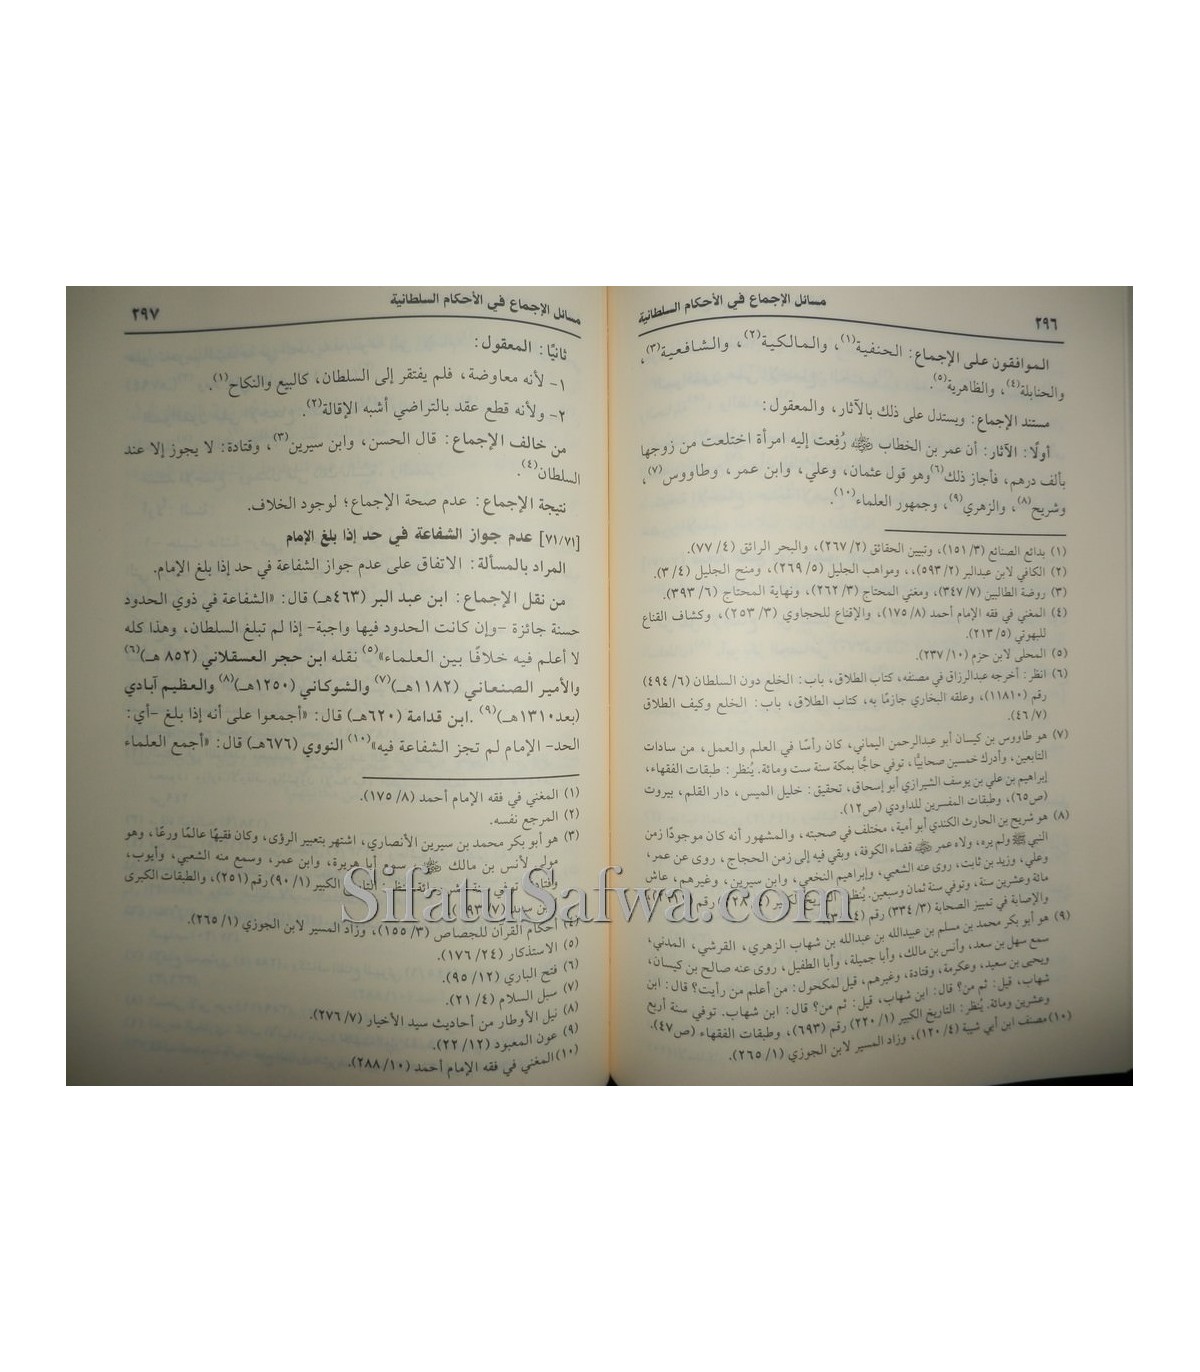 ٢٩٦
مسائل الإجماع في الأحكام السلطانية
الموافقون على الإجماع: الحنفية(١)، والمالكية(٢)، والشافعية(٣)،
والحنابلة(٤)، والظاهرية(٥).
مستند الإجماع: ويستدل على ذلك بالآثار، والمعقول:
أولًا: الآثار: أن عمر بن الخطاب ﷺ رُفِعت إليه امرأة اختلعت من زوجها
بألف درهم، فأجاز ذلك(٦)وهو قول عثمان، وعلي، وابن عمر، وطاووس(٧)،
وشريح(٨)، والزهري(٩)، وجمهور العلماء(١٠).
(١) بدائع الصنائع (٣/ ١٥١)، وتبيين الحقائق (٢/ ٢٦٧)، والبحر الرائق (٤/ ٧٧).
(٢) الكافي لابن عبدالبر (٢/ ٥٩٣)،، ومواهب الجليل (٥/ ٢٦٩)، ومنح الجليل (٤/ ٣).
(٣) روضة الطالبين (٧/ ٣٤٧)، ومغني المحتاج (٣/ ٢٦٢)، ونهاية المحتاج (٦/ ٣٩٣).
(٤) المغني في فقه الإمام أحمد (٨/ ١٧٥)، والإقناع للحجاوي (٣/ ٢٥٣)، وكشاف القناع
للبهوتي (٥/ ٢١٣).
(٥) المحلى لابن حزم (١٠/ ٢٣٧).
(٦) انظر: أخرجه عبدالرزاق في مصنفه، كتاب الطلاق، باب: الخلع دون السلطان (٦/ ٤٩٤)
رقم (١١٨١٠)، وعلقه البخاري جازمًا به، كتاب الطلاق، باب: الخلع وكيف الطلاق
(٧/ ٤٦).
(٧) هو طاووس بن كيسان أبو عبدالرحمن اليماني، كان رأسًا في العلم والعمل، من سادات
التابعين، وأدرك خمسين صحابيًّا، توفي حاجًّا بمكة سنة ست ومائة. يُنظر: طبقات الفقهاء،
إبراهيم بن علي بن يوسف الشيرازي أبو إسحاق، تحقيق: خليل الميس، دار القلم، بيروت
(ص٦٥)، وطبقات المفسرين للداودي (ص١٢).
(٨) هو شريح بن الحارث الكندي أبو أمية، مختلف في صحبته، والمشهور أنه كان موجودًا زمن
النبي ﷺ ولم يره، ولاه عمر قضاء الكوفة، وبقي فيه إلى زمن الحجاج، روى عن عمر،
وعلي، وزيد بن ثابت، روى عنه الشعبي، وإبراهيم النخعي، وابن سيرين، وغيرهم، عاش
مائة وعشرين سنة، وتوفي سنة ثمان وسبعين. يُنظر: التاريخ الكبير (٤/ ٢٢٨) رقم
والإصابة في تمييز الصحابة (٣/ ٣٣٤) رقم
(٩) هو أبو بكر محمد بن مسلم بن عبيدالله بن عبدالله بن شهاب الزهري، القرشي، المدني،
سمع سهل بن سعد، وأنس بن مالك، وأبا جميلة، وأبا الطفيل، روى عنه صالح بن كيسان،
ويحيى بن سعيد، وعكرمة، وقتادة، وغيرهم، قيل لمكحول: من أعلم من رأيت؟ قال: ابن
شهاب، قيل: ثم من؟ قال: ابن شهاب، قيل: ثم من؟ قال: ابن شهاب. توفي سنة أربع
وعشرين ومائة. يُنظر: التاريخ الكبير (١/ ٢٢٠) رقم (٦٩٣)، وطبقات الفقهاء (ص٤٧).
(١٠) مصنف ابن أبي شيبة (٤/ ١٢٠)، وزاد المسير لابن الجوزي (١/ ٢٦٥).
مسائل الإجماع في الأحكام السلطانية
٢٩٧
ثانيًا: المعقول:
١- لأنه معاوضة، فلم يفتقر إلى السلطان، كالبيع والنكاح(١).
٢- ولأنه قطع عقد بالتراضي أشبه الإقالة(٢).
من خالف الإجماع: قال الحسن، وابن سيرين(٣)، وقتادة: لا يجوز إلا عند
السلطان(٤).
نتيجة الإجماع: عدم صحة الإجماع؛ لوجود الخلاف.
[٧١/٧١] عدم جواز الشفاعة في حد إذا بلغ الإمام
المراد بالمسألة: الاتفاق على عدم جواز الشفاعة في حد إذا بلغ الإمام.
من نقل الإجماع: ابن عبد البر (٤٦٣هـ) قال: «الشفاعة في ذوي الحدود
حسنة جائزة -وإن كانت الحدود فيها واجبة- إذا لم تبلغ السلطان، وهذا كله
لا أعلم فيه خلافًا بين العلماء»(٥) نقله ابن حجر العسقلاني (٨٥٢ هـ)(٦)
والأمير الصنعاني (١١٨٢هـ)(٧) والشوكاني (١٢٥٠هـ)(٨) والعظيم آبادي
(بعد١٣١٠هـ)(٩) .ابن قدامة (٦٢٠هـ) قال: «أجمعوا على أنه إذا بلغ -أي:
الحد- الإمام لم تجز الشفاعة فيه»(١٠) النووي (٦٧٦هـ) قال: «أجمع العلماء
(١) المغني في فقه الإمام أحمد (٨/ ١٧٥).
(٢) المرجع نفسه.
(٣) هو أبو بكر محمد بن سيرين الأنصاري، اشتهر بتعبير الرؤى، وكان فقيهًا عالمًا ورعًا، وهو
مولى لأنس بن مالك سمع أبا هريرة، وابن عمر، وسمع منه الشعبي، وأيوب،
وقتادة، توفي سنة عشر ومائة. يُنظر: التاريخ الكبير (١/ ٩٠) رقم (٢٥١)، والطبقات الكبرى
لابن سعد (٧/ ١٩٣).
(٤) أحكام القرآن للجصاص (٣/ ١٥٥)، وزاد المسير لابن الجوزي (١/ ٢٦٥).
(٥) الاستذكار (٢٤/ ١٧٦).
(٦) فتح الباري (١٢/ ٩٥).
(٧) سبل السلام (٤/ ٢١).
(٨) نيل الأوطار من أحاديث سيد الأخيار (٧/ ٢٧٦).
(٩) عون المعبود (١٢/ ٢٢).
(١٠) المغني في فقه الإمام أحمد (١٠/ ٢٨٨).
SifatuSafwa.com